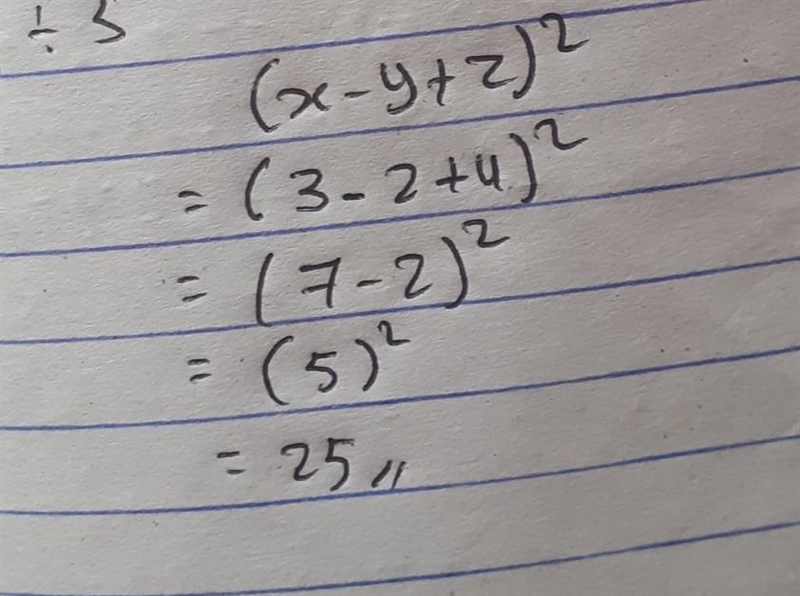 ÷ 3
(x-y+z)²
= (3-2+4)²
= (7-2)²
= (5)²
= 25 //